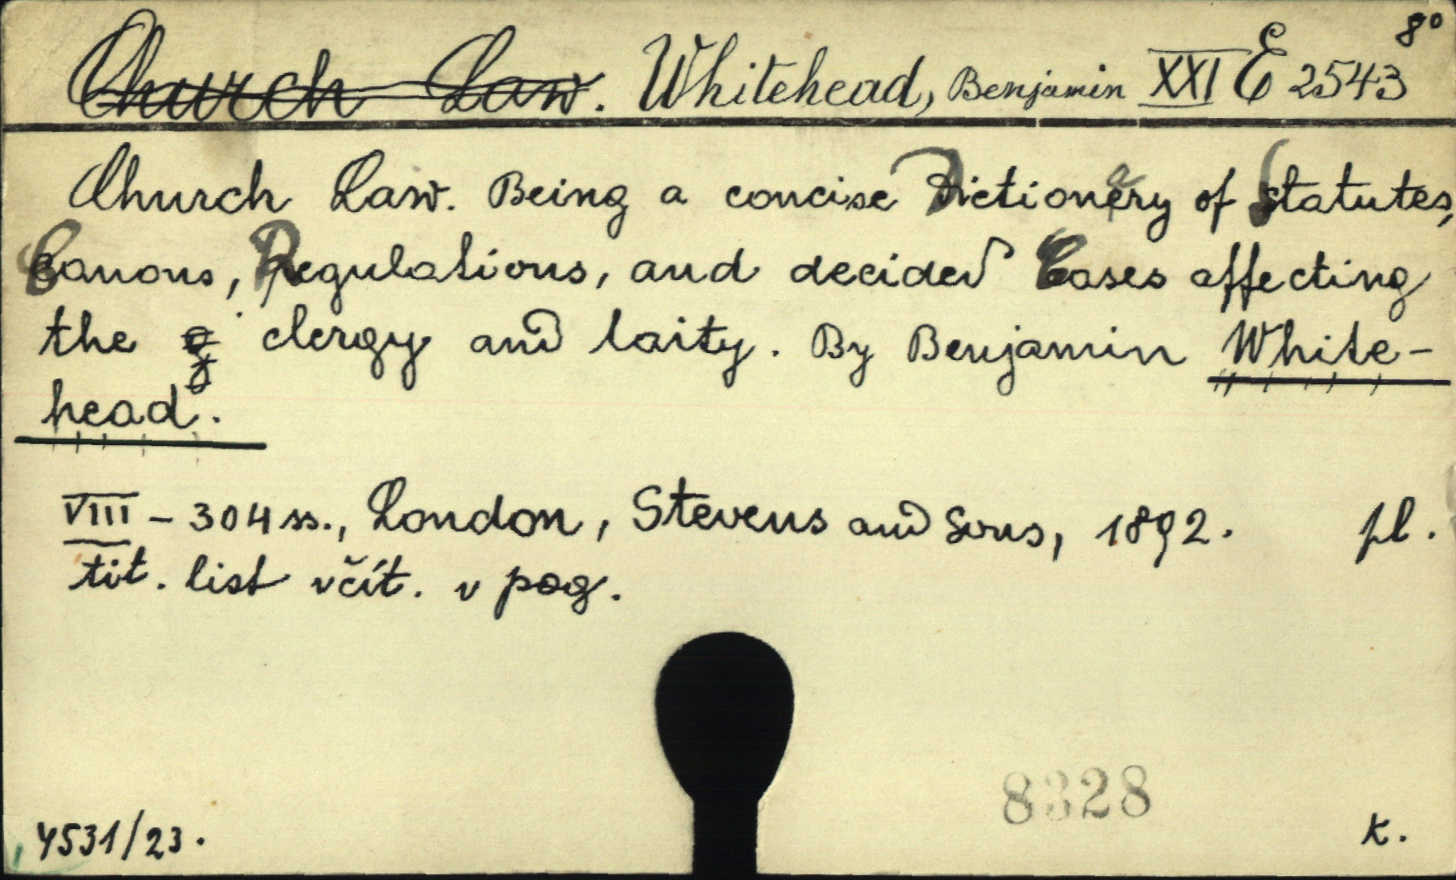 8°
Church Law. Whitehead, Benjamin XXI E 2543
Church Law. Being a concise Dictionary of Statutes,
Canons, Regulations, and decided Cases affecting
the clergy and laity. By Benjamin White-
head.
VIII – 304 ss., London, Stevens and Sons, 1892. pl.
tit. list včít. v pag.
8328
4531/23. k.